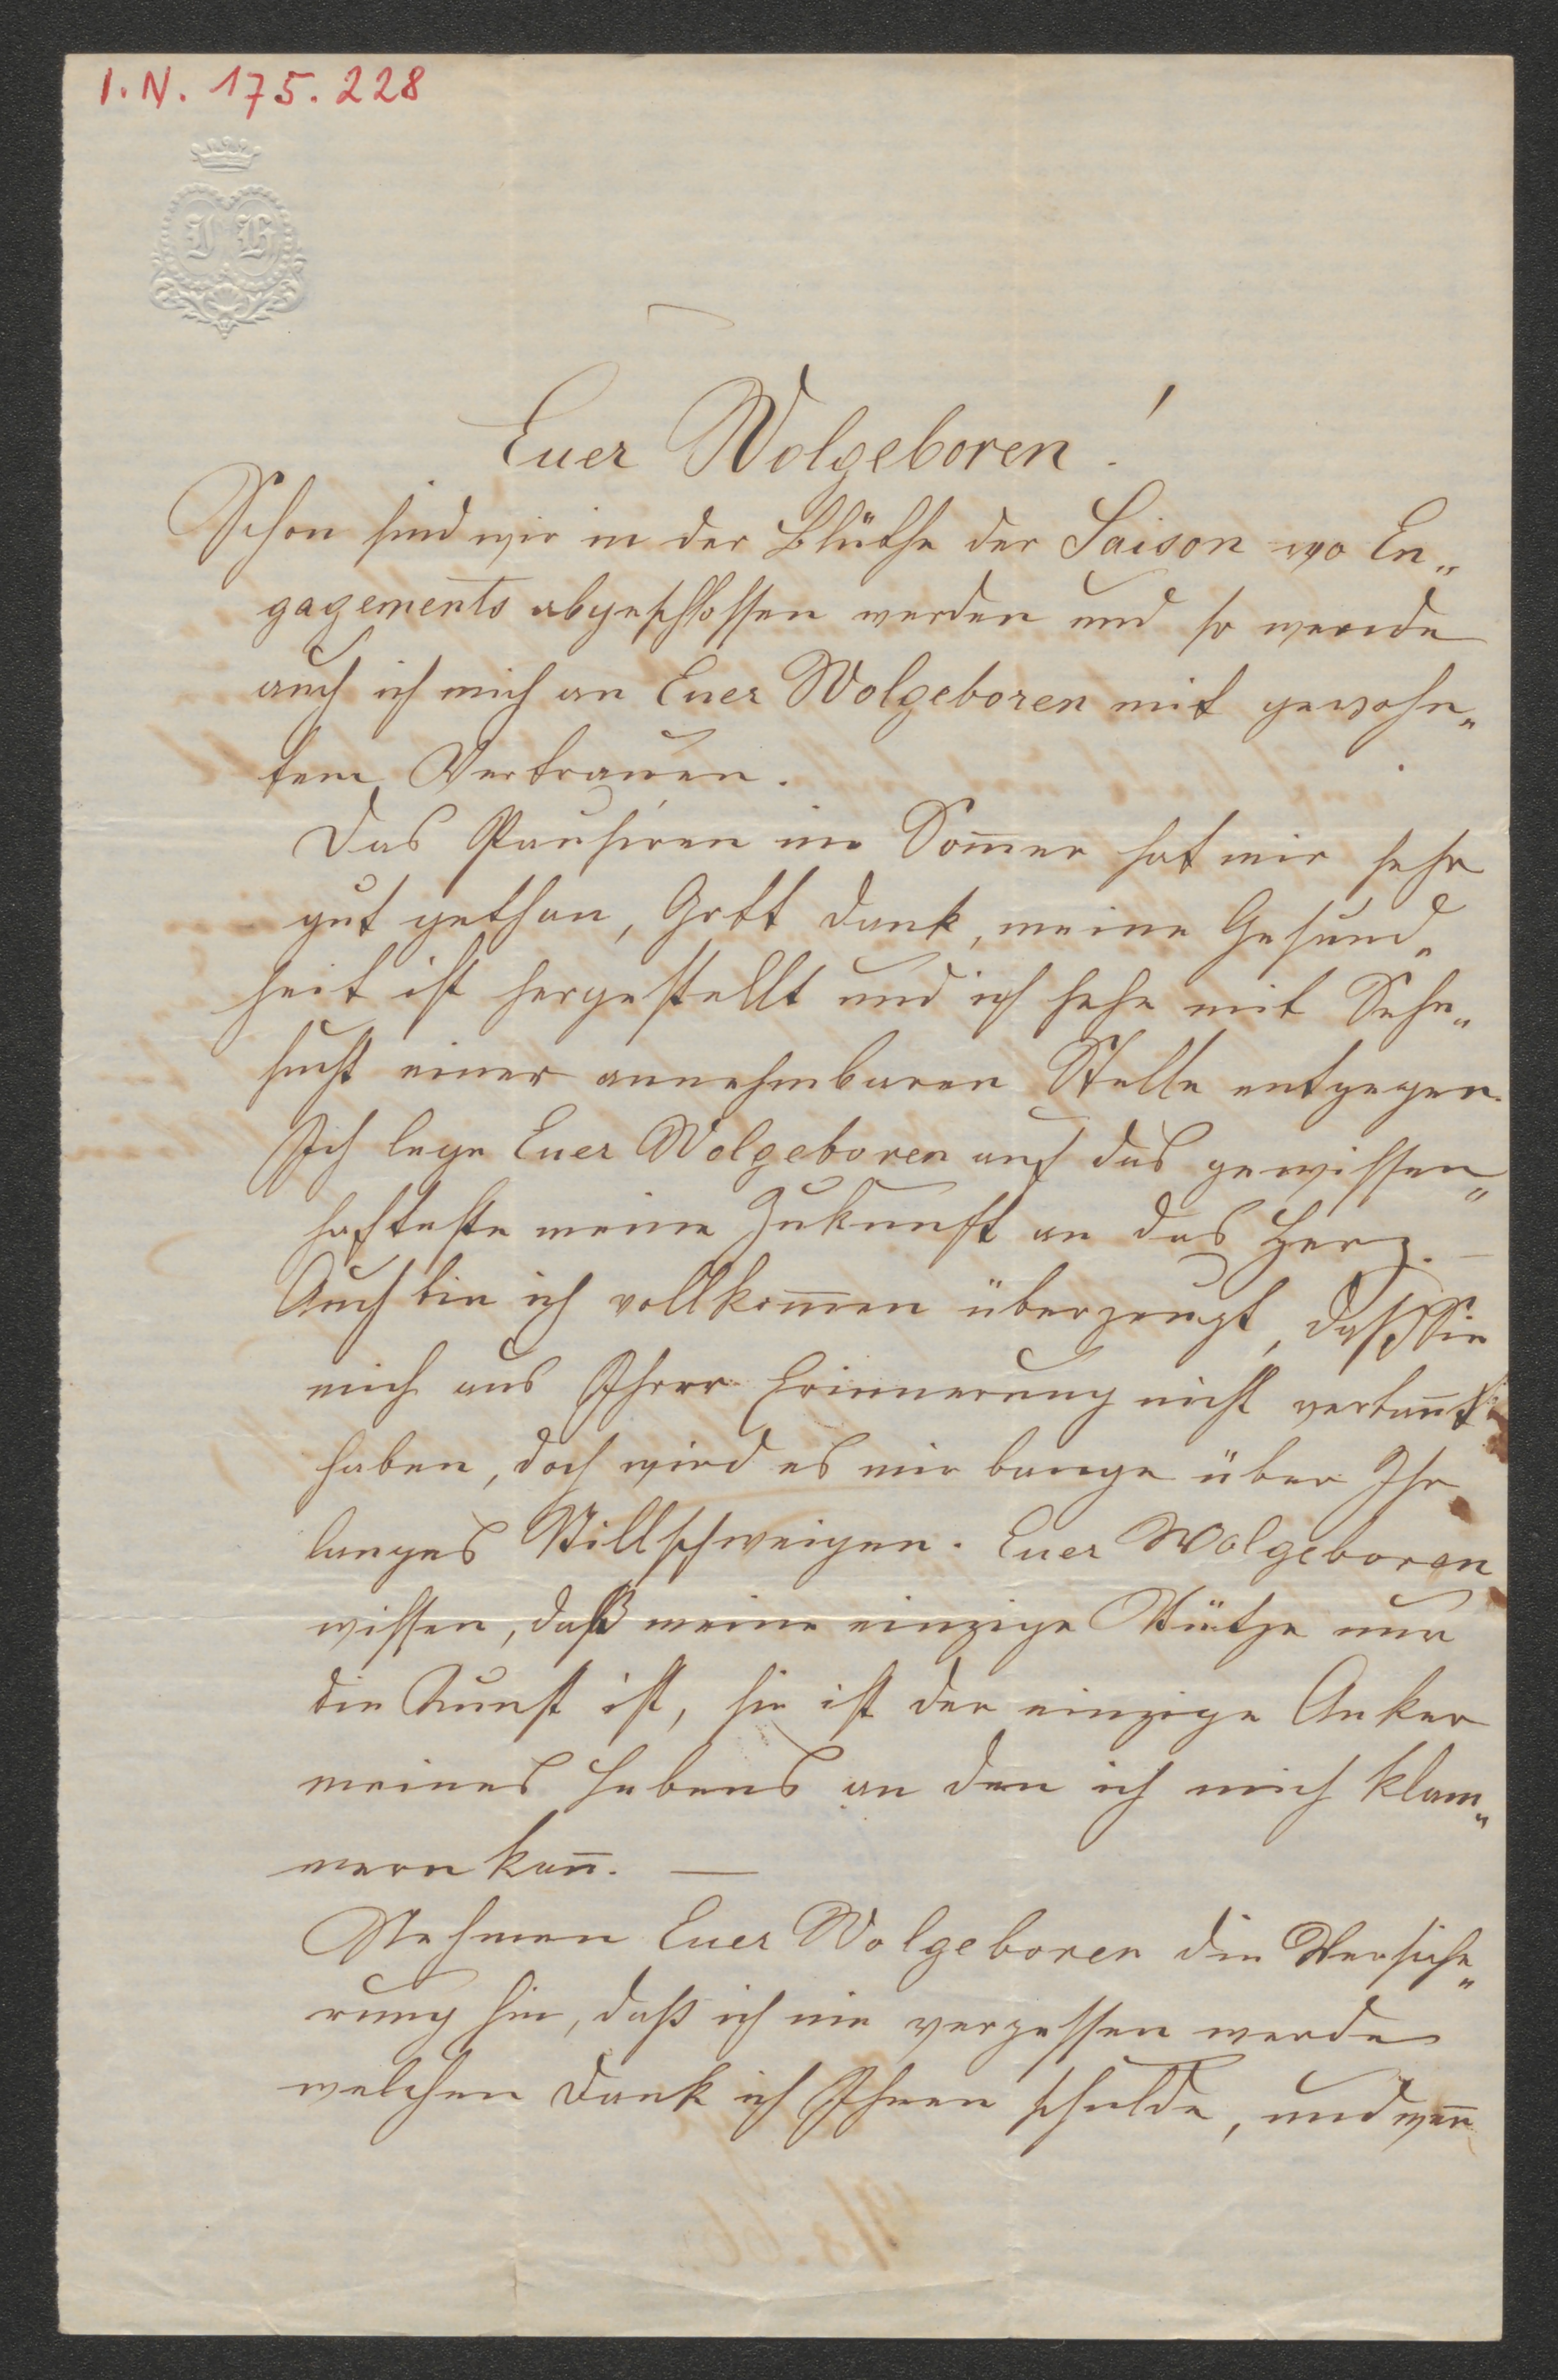 I.N. 175.228
J H
Euer Wolgeboren!
Schon sind wir in der Blüthe der Saison wo En„
gagements abgeschlossen werden und so wende
auch ich mich an Euer Wolgeboren mit gewohn„
tem Vertrauen.
Das Pausiren im Som̄er hat mir sehr
gut gethan, Gott Dank, meine Gesund„
heit ist hergestellt und ich sehe mit Sehn„
sucht einer annehmbaren Stelle entgegen.
Ich lege Euer Wolgeboren auf das gewissen„
hafteste meine Zukunft an das Herz. —
Auch bin ich vollkom̄en überzeugt, daß Sie
mich aus Ihrer Erinnerung nicht verban̄t
haben, doch wird es mir bange über Ihr
langes Stillschweigen. Euer Wolgeboren
wissen, daß meine einzige Stütze nur
die Kunst ist, sie ist der einzige Anker
meines Lebens an den ich mich klam„
mern kan̄. —
Nehmen Euer Wolgeboren die Versiche„
rung hin, daß ich nie vergessen werde
welchen Dank ich Ihnen schulde, und wen̄